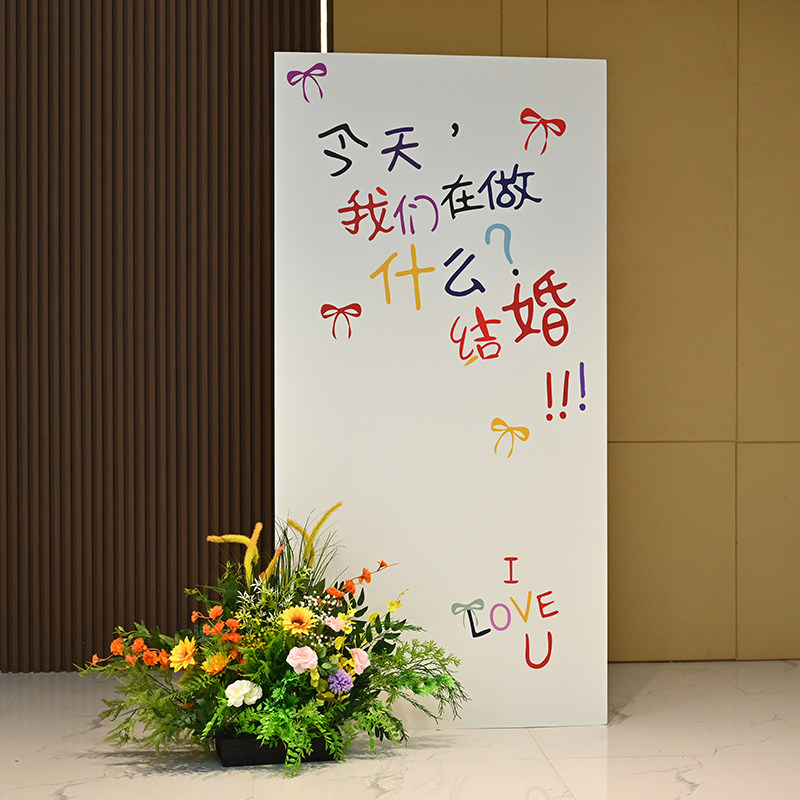 今天，
我们在做
什么？
结婚
!!!
I
LOVE
U